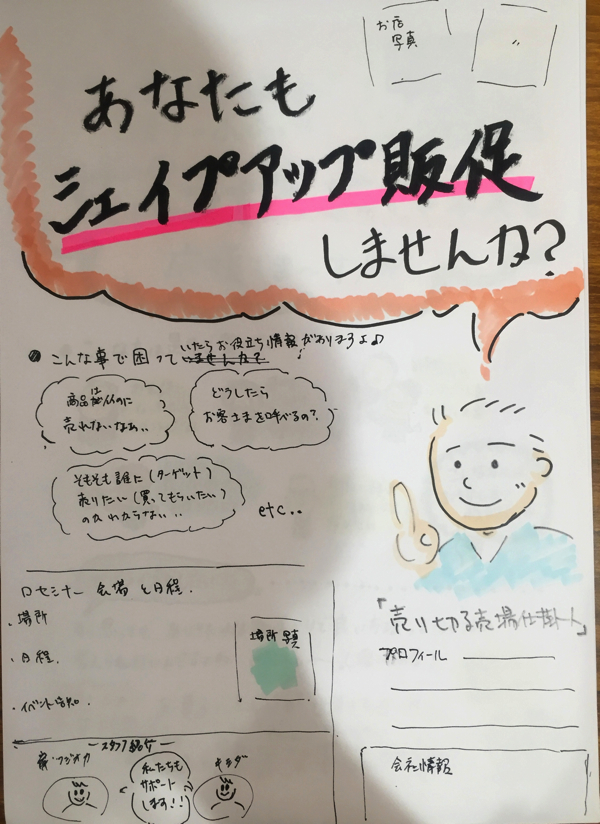 お店
写真
〃
あなたも
シェイプアップ販促
しませんか?
こんな事で困って いませんか?
いたらお役立ち情報がありますよ♪
商品は
売れないなぁ..
どうしたら
お客さまを呼べるの?
そもそも誰に(ターゲット)
売りたい(買ってもらいたい)
のかわからない..
etc..
セミナー 会場と日程.
・場所
場所 写真
・日程.
・イベント告知.
「売り切る売場仕掛人」
プロフィール
会社情報
スタッフ紹介
フジオカ
私たちも
サポート
します!!
キタダ